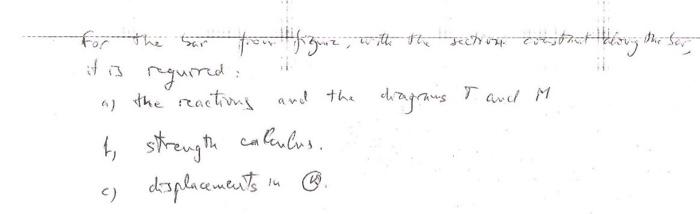 For the bar from figure, with the section constant along the bar,
it is required:
a) the reactions and the diagrams T and M
b, strength calculus.
c) displacements in K.